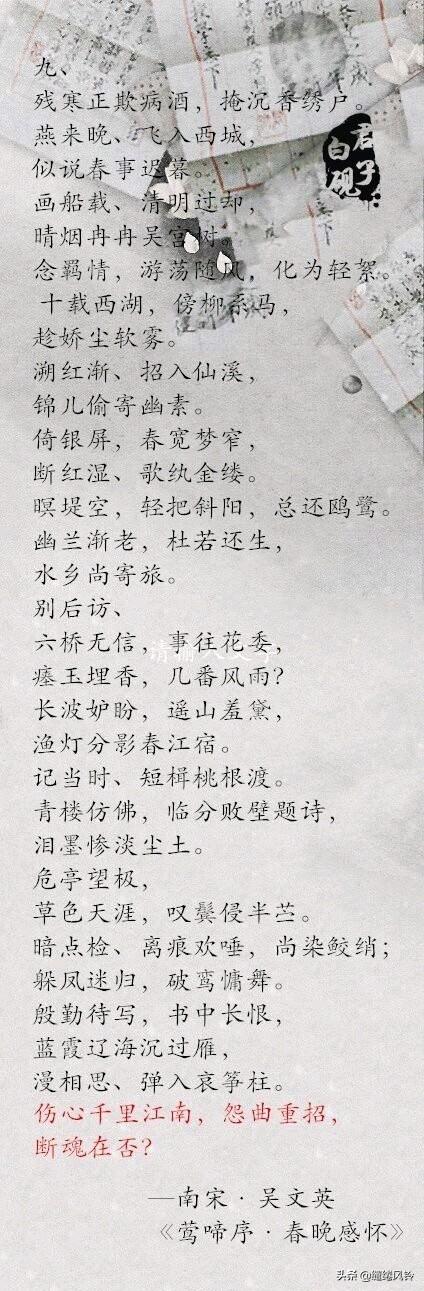 九、
残寒正欺病酒，掩沉香绣户。
燕来晚、飞入西城，
似说春事迟暮。
画船载、清明过却，
晴烟冉冉吴宫树。
念羁情，游荡随风，化为轻絮。
十载西湖，傍柳系马，
趁娇尘软雾。
溯红渐、招入仙溪，
锦儿偷寄幽素。
倚银屏，春宽梦窄，
断红湿、歌纨金缕。
暝堤空，轻把斜阳，总还鸥鹭。
幽兰渐老，杜若还生，
水乡尚寄旅。
别后访、
六桥无信，事往花委，
瘗玉埋香，几番风雨？
长波妒盼，遥山羞黛，
渔灯分影春江宿。
记当时、短楫桃根渡。
青楼仿佛，临分败壁题诗，
泪墨惨淡尘土。
危亭望极，
草色天涯，叹鬓侵半苎。
暗点检、离痕欢唾，尚染鲛绡；
亸凤迷归，破鸾慵舞。
殷勤待写，书中长恨，
蓝霞辽海沉过雁，
漫相思、弹入哀筝柱。
伤心千里江南，怨曲重招，
断魂在否？
—南宋·吴文英
《莺啼序·春晚感怀》
君子
白砚
头条 @缱绻风铃